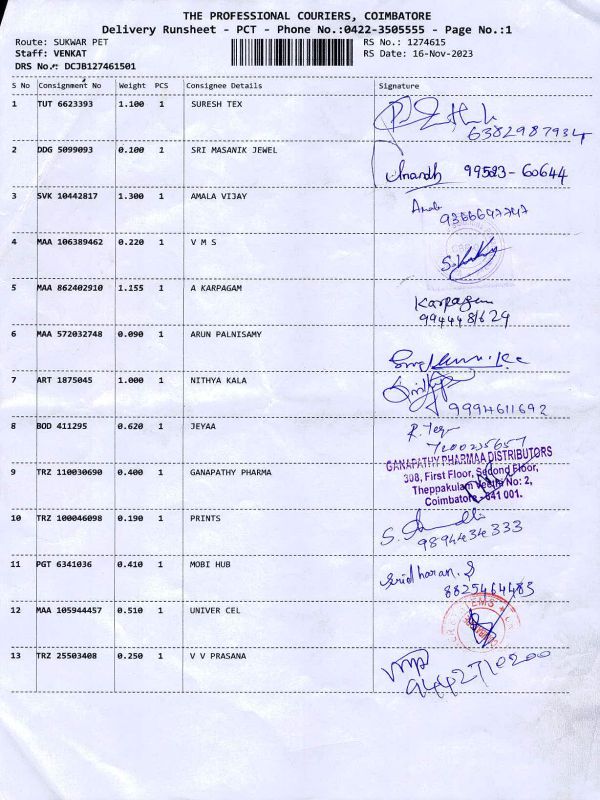 THE PROFESSIONAL COURIERS, COIMBATORE
Delivery Runsheet - PCT - Phone No.:0422-3505555 - Page No.:1
Route: SUKWAR PET RS No.: 1274615
Staff: VENKAT RS Date: 16-Nov-2023
DRS No.: DCJB127461501
S No Consignment No Weight PCS Consignee Details Signature
1 TUT 6623393 1.100 1 SURESH TEX
6382987934
2 DDG 5099093 0.100 1 SRI MASANIK JEWEL
Anandh 99523-60644
3 SVK 10442817 1.300 1 AMALA VIJAY
4 MAA 106389462 0.220 1 V M S
5 MAA 862402910 1.155 1 A KARPAGAM
Karpagam
6 MAA 572032748 0.090 1 ARUN PALNISAMY
7 ART 1875045 1.000 1 NITHYA KALA
9994611692
8 BOD 411295 0.620 1 JEYAA
7200235657
GANAPATHY PHARMAA DISTRIBUTORS
9 TRZ 110030690 0.400 1 GANAPATHY PHARMA
308, First Floor, Second Floor,
Theppakulam Veethi No: 2,
Coimbatore -641 001.
10 TRZ 100046098 0.190 1 PRINTS
9894434333
11 PGT 6341036 0.410 1 MOBI HUB
Sridharan. S
8825464483
12 MAA 105944457 0.510 1 UNIVER CEL
13 TRZ 25503408 0.250 1 V V PRASANA
9442710200